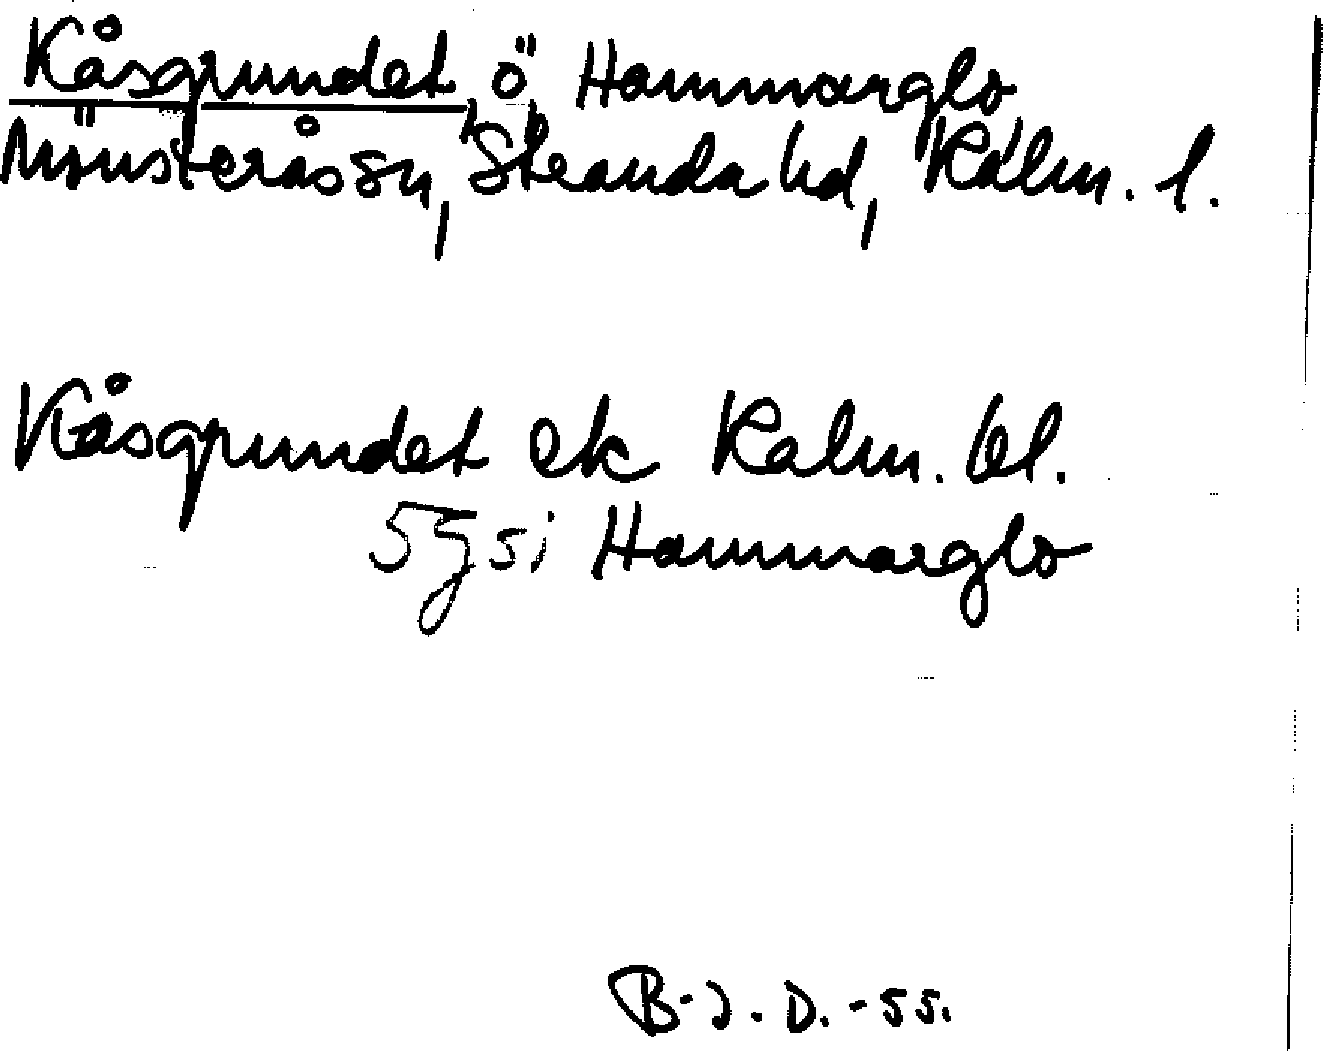 Kåsgrundet, ö, Hammarglo
Mönsterås sn, Stranda hd, Kalm. l.
Kåsgrundet ek Kalm. bl.
5g5i Hammarglo
B-J. D. -55.